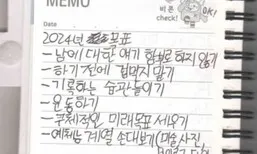 MEMO
비 폰
check!
OK!
Date
2024년 목표
- 남에 대한 얘기 함부로 하지 않기
- 하기 전에 겁먹지 말기
- 기록하는 습관들이기
- 운동하기
- 구체적인 미래목표 세우기
- 예체능 계열 손대보기 (미술, 사진